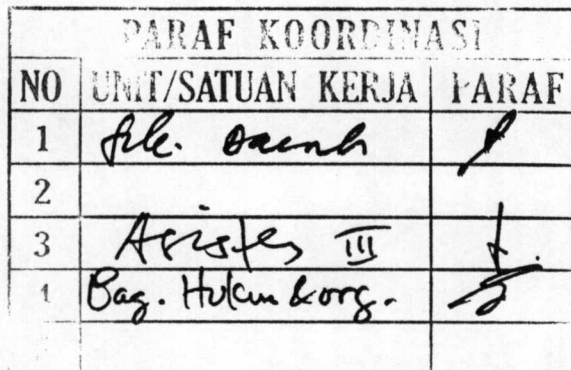 PARAF KOORDINASI
NO UNIT/SATUAN KERJA PARAF
1 Sek. Daerah
2
3 Asisten III
4 Bag. Hukum & org.